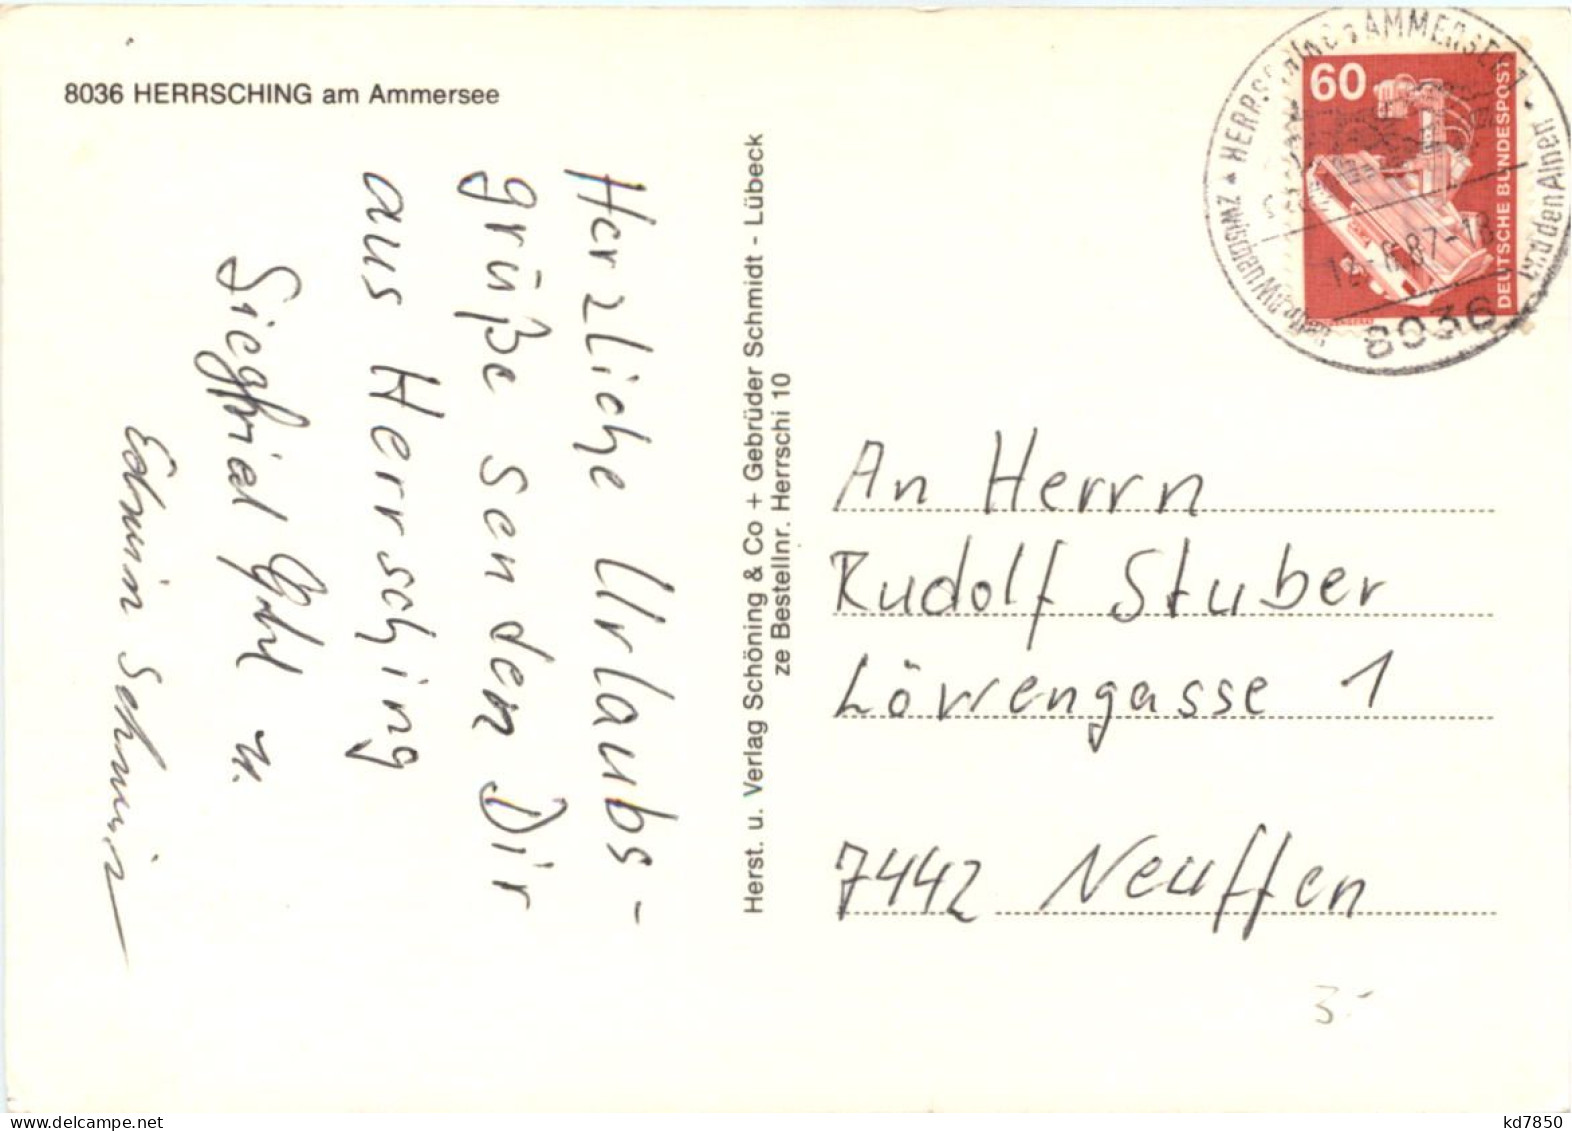 8036 HERRSCHING am Ammersee
Herzliche Urlaubs-
grüße senden Dir
aus Herrsching
Siegfried u.
Edwin
Herst. u. Verlag Schöning & Co + Gebrüder Schmidt - Lübeck
ze Bestellnr. Herrschi 10
60
DEUTSCHE BUNDESPOST
HERRSCHING a AMMERSEE 1
8036
Zwischen München und den Alpen
An Herrn
Rudolf Stuber
Löwengasse 1
7442 Neuffen
3,-
kd7850